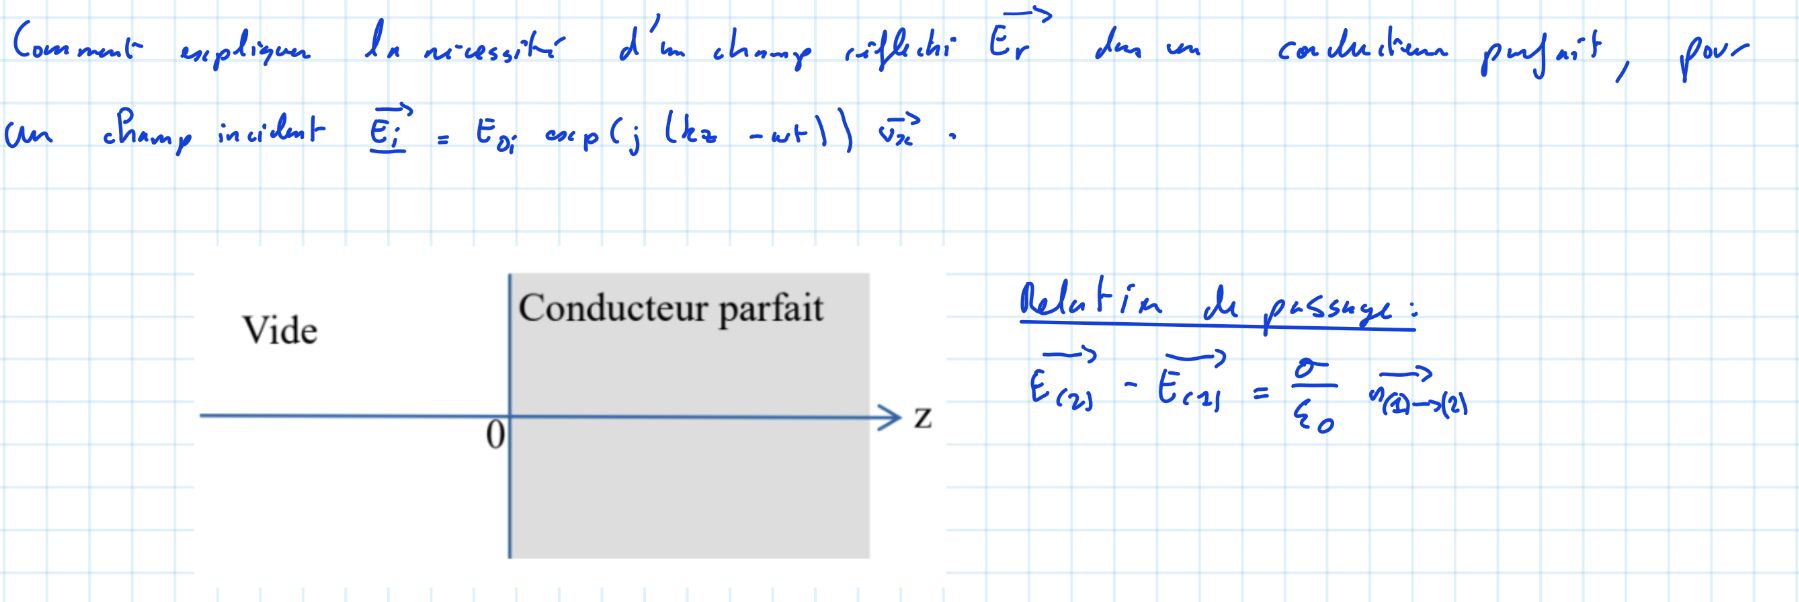 Comment expliquer la nécessité d'un champ réfléchi Er dans un conducteur parfait, pour
un champ incident Ei = E0i exp(j(kz - wt)) ux.
Vide
Conducteur parfait
0
z
Relation de passage :
E(2) - E(1) = σ/ε0 n(1)→(2)